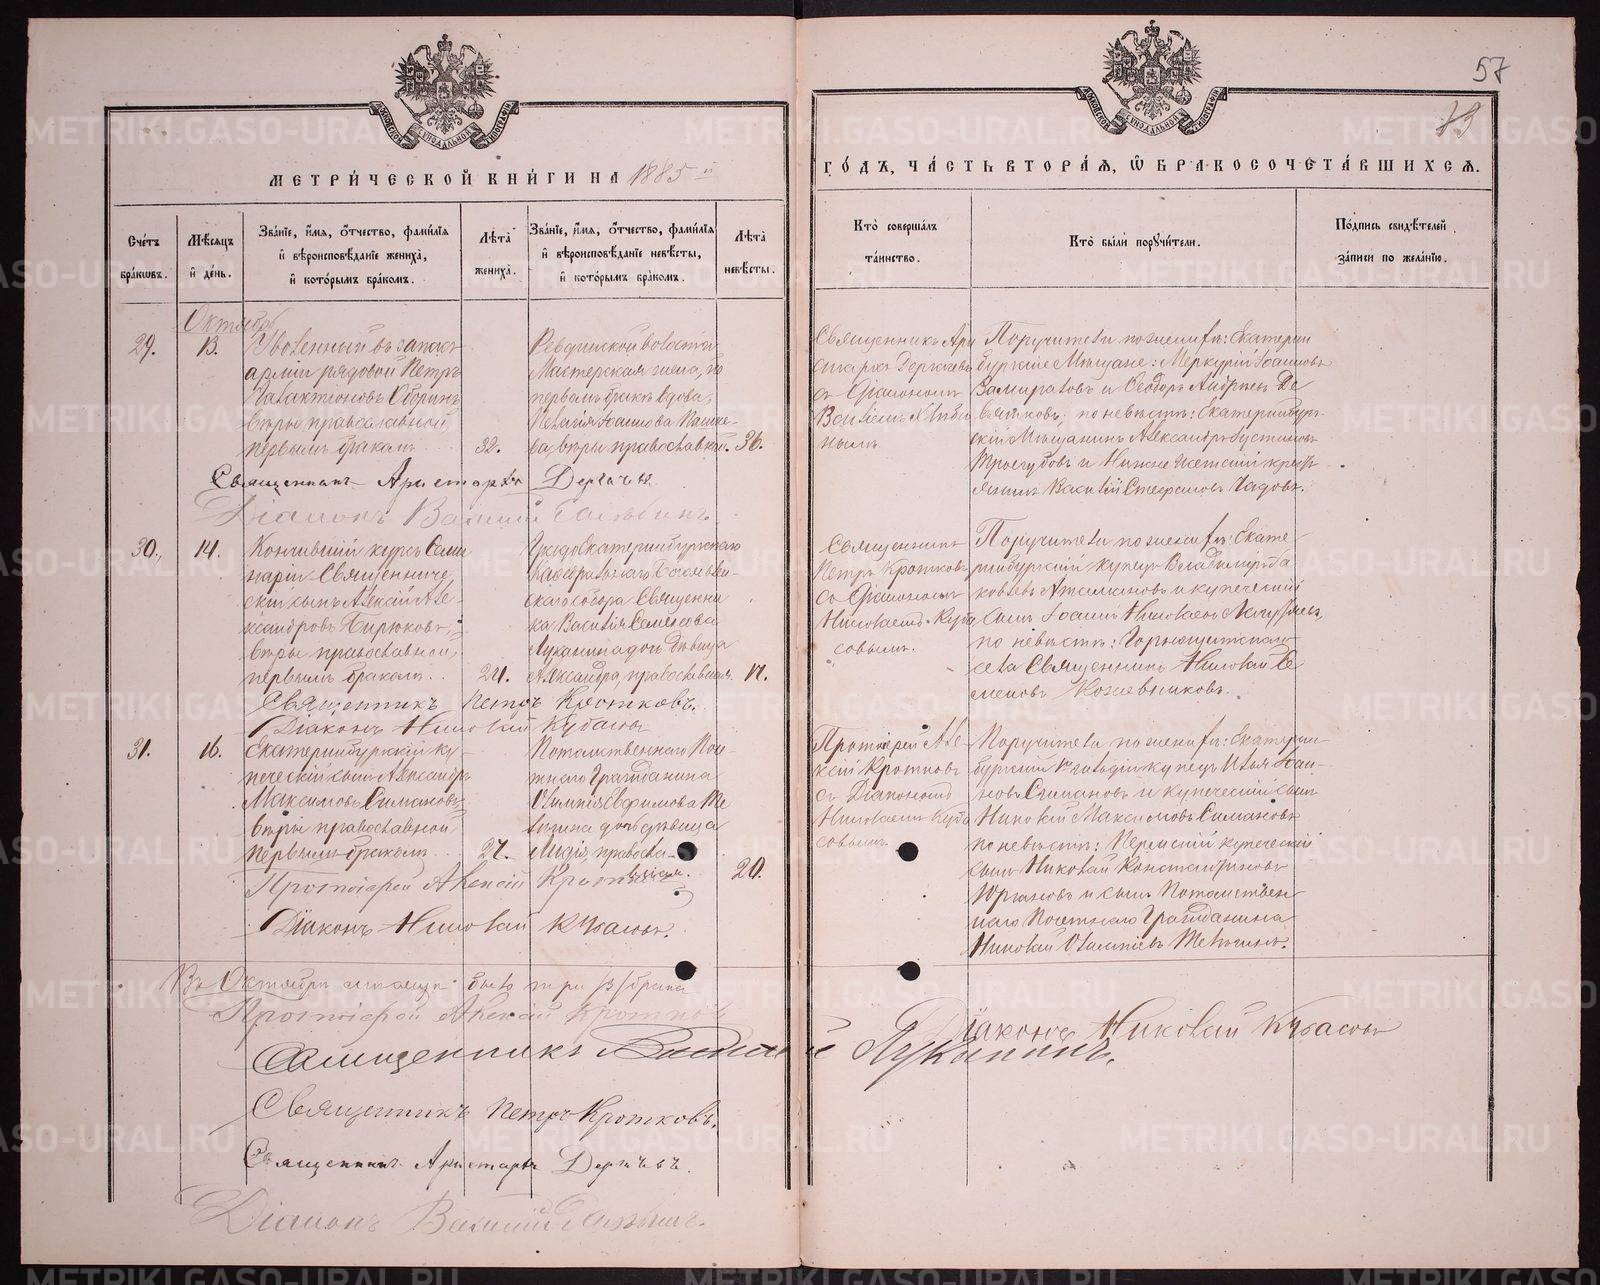 57
79
МЕТРИ́ЧЕСКОЙ КНИ́ГИ НА 1885 й
ГО́ДЪ, ЧА́СТЬ ВТОРА́Я, Ѡ БРАКОСОЧЕТА́ВШИХСЯ.
Сче́тъ бра́ковъ.
Мѣ́сяцъ и де́нь.
Зва́нїе, и́мя, о́тчество, фами́лїя и вѣроисповѣ́данїе жениха̀, и кото́рымъ бра́комъ.
Лѣ́та жениха̀.
Зва́нїе, и́мя, о́тчество, фами́лїя и вѣроисповѣ́данїе невѣ́сты, и кото́рымъ бра́комъ.
Лѣ́та невѣ́сты.
Кто̀ соверша́лъ та́инство.
Кто̀ бы́ли поручи́тели.
По́дпись свидѣ́телей за́писи по жела́нїю.
Октябрь
29.
13.
Уволенный въ запасъ
арміи рядовой Петръ
вѣры православной
первымъ бракомъ
32.
Ревдинской волости
Мастерская жена, по
первомъ бракѣ вдова,
ва, вѣры православной.
36.
Священникъ Ари
стархъ Дергачевъ
съ Діакономъ
Поручители по женихѣ: Екатерин
бургскіе Мѣщане: Меркурій Іоанновъ
и Ѳеодоръ Андреевъ Де
вятковъ; по невѣстѣ: Екатеринбург
скій Мѣщанинъ Александръ Іустиновъ
и Нижне Исетскій крест
янинъ Василій Стефановъ Чадовъ.
Священникъ Аристархъ Дергачевъ
Діаконъ Василій
30.
14.
Кончившій курсъ Семи
наріи Священниче
скій сынъ Алексій Але
ксандровъ Бирюковъ,
вѣры православной,
первымъ бракомъ.
24.
Градо Екатеринбургскаго
Каѳедральнаго Богоявлен
скаго собора Священни
ка Василія Семенова
Луканина дочь дѣвица
Александра, православная.
17.
Священникъ
Петръ Кротковъ
съ Діакономъ
Николаемъ Куба
совымъ.
Поручители по женихѣ: Екате
ринбургскій купецъ Владиміръ Яа
ковлевъ Атамановъ и купеческій
сынъ Іоаннъ Николаевъ
по невѣстѣ: Горнощитскаго
села Священникъ Николай Се
меновъ Кожевниковъ.
Священникъ Петръ Кротковъ.
Діаконъ Николай Кубасовъ
31.
16.
Екатеринбургскій ку
печескій сынъ Александръ
Максимовъ Симановъ,
вѣры православной
первымъ бракомъ
27.
Потомственнаго Поче
тнаго Гражданина
Олимпія Евфимова Ме
тѣлина дочь дѣвица
Лидія, правосла
вная.
20.
Протоіерей Але
ксій Кротковъ
съ Діакономъ
Николаемъ Куба
совымъ.
Поручители по женихѣ: Екатерин
бургскій 1й гильдіи купецъ Илья Іоан
новъ Симановъ и купеческій сынъ
Николай Максимовъ Симановъ
по невѣстѣ: Пермскій купеческій
сынъ Николай Константиновъ
Юргановъ и сынъ Потомствен
наго Почетнаго Гражданина
Николай Олимпіевъ Метѣлинъ.
Протоіерей Алексій Кротковъ
Діаконъ Николай Кубасовъ.
Въ Октябрѣ мѣсяцѣ было три /3/ брака
Протоіерей Алексій Кротковъ
Діаконъ Николай Кубасовъ
Священникъ Василій Луканинъ.
Священникъ Петръ Кротковъ.
Священникъ Аристархъ Дергачевъ.
Діаконъ Василій
METRIKI.GASO-URAL.RU